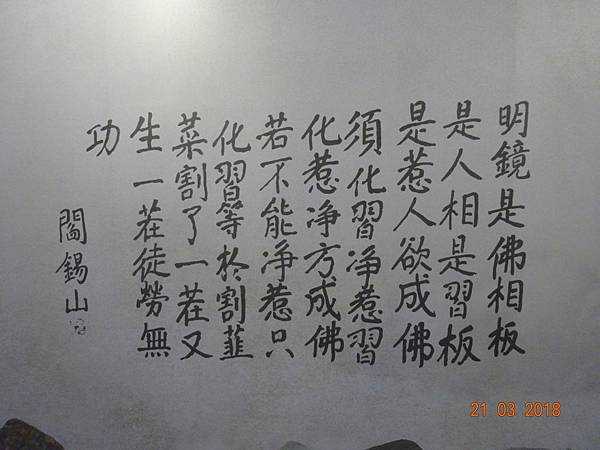 明鏡是佛相板
是人相是習板
是惹人欲成佛
須化習净惹習
化惹净方成佛
若不能净惹只
化習等於割韮
菜割了一茬又
生一茬徒勞無
功
閻錫山
21 03 2018